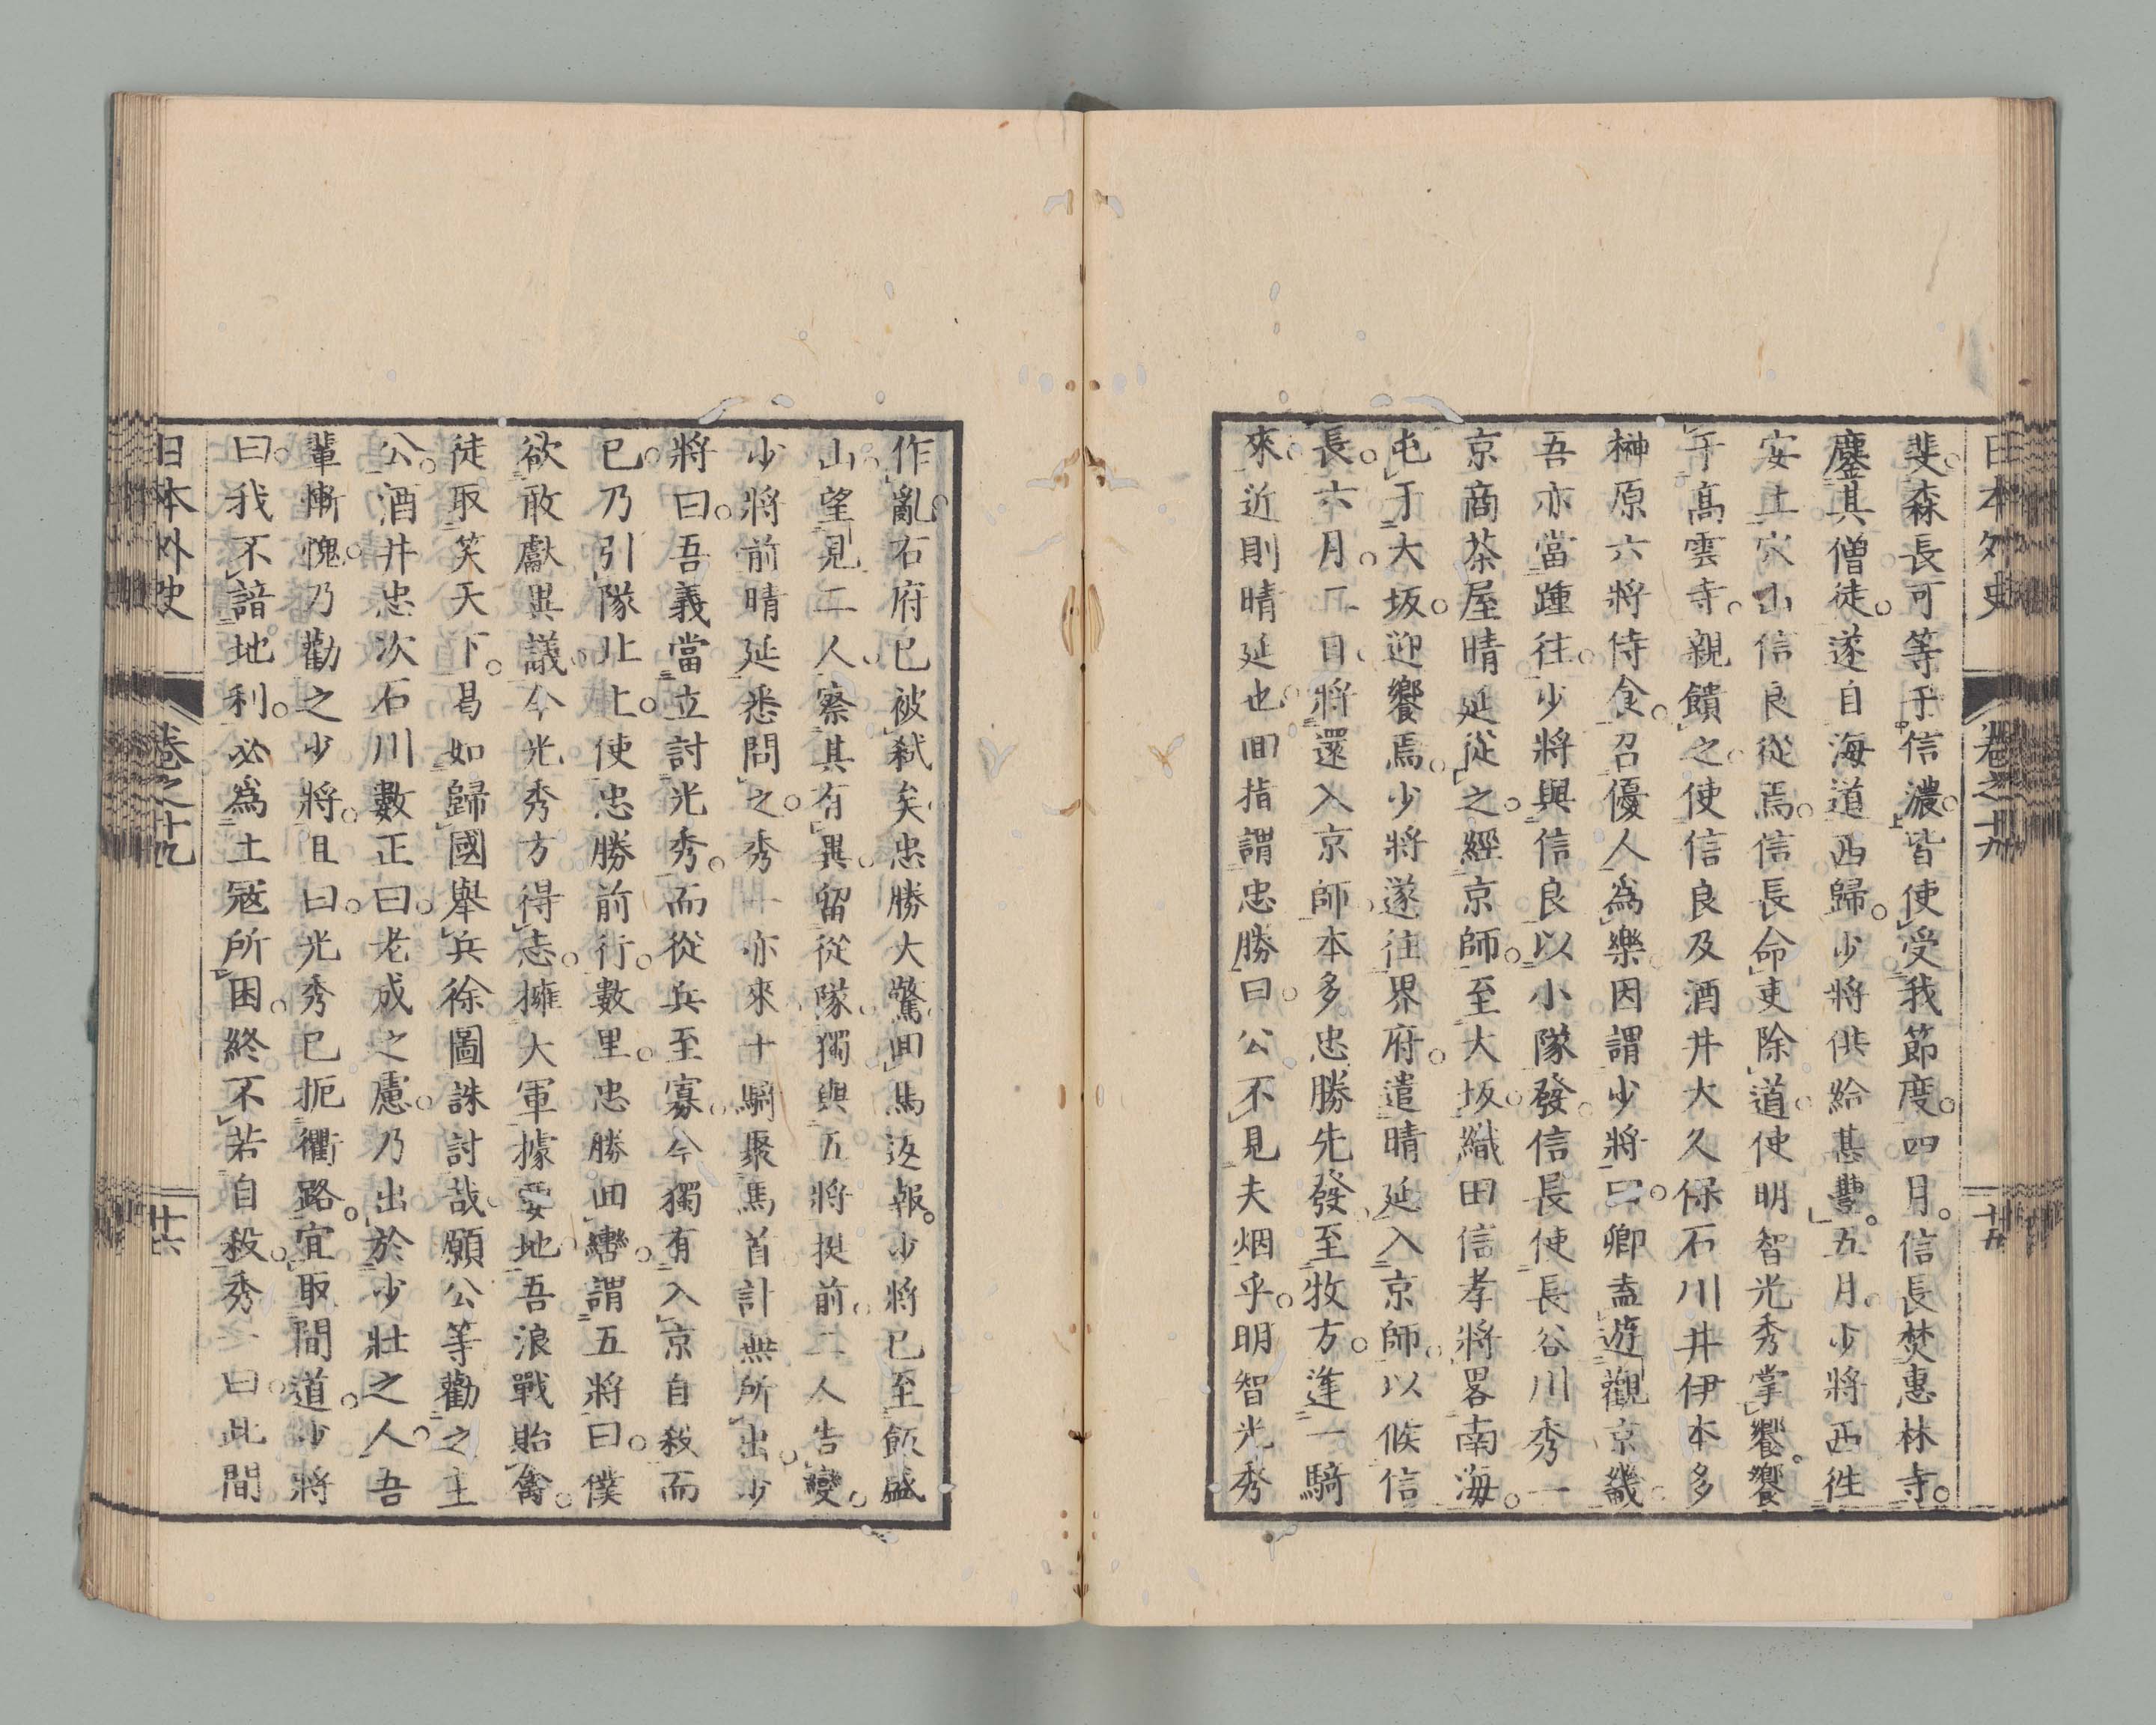 日本外史 卷之十九 廿五
斐森長可等于信濃皆使受我節度四月信長焚惠林寺
鏖其僧徒遂自海道西歸少將供給甚豐五月少將西徃
安土穴山信良從焉信長命吏除道使明智光秀掌饗饗
于高雲寺親饋之使信良及酒井大久保石川井伊本多
榊原六將侍食召優人爲樂因謂少將曰卿盍遊觀京畿
吾亦當踵往少將與信良以小隊發信長使長谷川秀一
京商茶屋晴延從之經京師至大坂織田信孝將畧南海
屯于大坂迎饗焉少將遂往界府遣晴延入京師以候信
長六月二日將還入京師本多忠勝先發至牧方逢一騎
來近則晴延也回指謂忠勝曰公不見夫烟乎明智光秀
作亂右府已被弑矣忠勝大驚回馬返報少將已至飯盛
山望見二人察其有異留從隊獨與五將挺前二人告變
少將前晴延悉問之秀一亦來十騎聚馬首計無所出少
將曰吾義當立討光秀而從兵至寡今獨有入京自殺而
已乃引隊北上使忠勝前行數里忠勝回轡謂五將曰僕
欲敢獻異議今光秀方得志擁大軍據要地吾浪戰貽禽
徒取笑天下曷如歸國舉兵徐圖誅討哉願公等勸之主
公酒井忠次石川數正曰老成之慮乃出於少壯之人吾
輩慚愧乃勸之少將且曰光秀已扼衢路宜取間道少將
曰我不諳地利必爲土冦所困終不若自殺秀一曰此間
日本外史 卷之十九 廿六